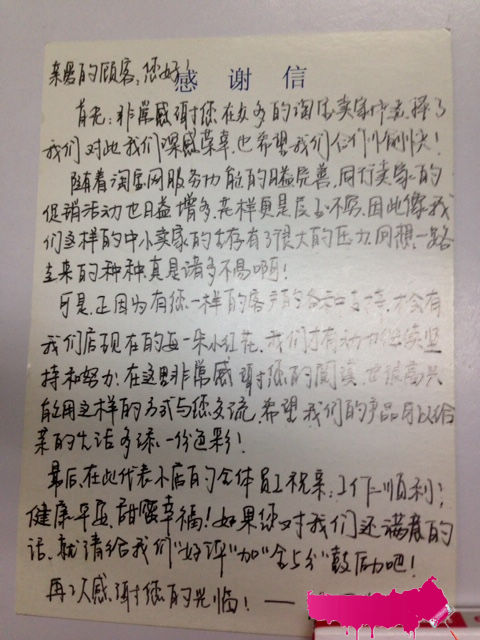 感谢信
亲爱的顾客，您好！
首先，非常感谢您在众多的淘宝卖家中选择了
我们 对此我们深感荣幸，也希望我们合作愉快！
随着淘宝网服务功能的日益完善，同行卖家的
促销活动也日益增多，花样更是层出不穷，因此像我
们这样的中小卖家的生存有了很大的压力，回想一路
走来的种种真是诸多不易啊！
可是，正因为有您一样的客户的 和支持，才会有
我们店现在的每一朵小红花，我们才有动力继续坚
持和努力，在这里非常感谢您的阅读，也很高兴
能用这样的方式与您交流，希望我们的产品可以给
亲的生活多添一份色彩！
最后，在此代表小店的全体员工祝亲：工作顺利；
健康平安，甜蜜幸福！如果您对我们还满意的
话，就请给我们"好评"加"全5分"鼓励吧！
再次感谢您的光临！——